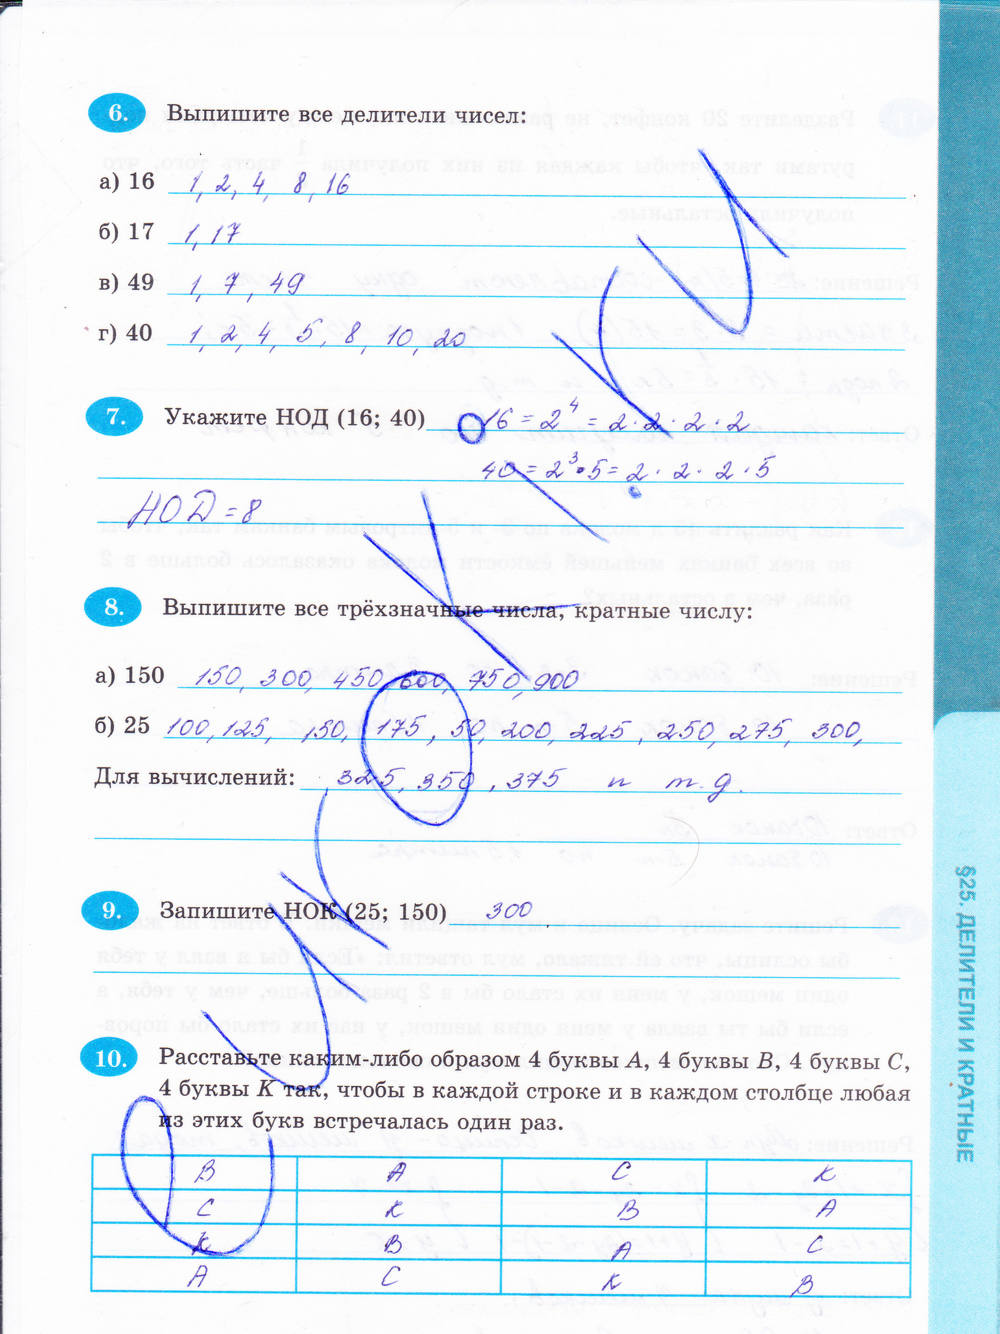 6. Выпишите все делители чисел:
а) 16 1, 2, 4, 8, 16
б) 17 1, 17
в) 49 1, 7, 49
г) 40 1, 2, 4, 5, 8, 10, 20
7. Укажите НОД (16; 40) 16 = 2⁴ = 2 · 2 · 2 · 2
40 = 2³ · 5 = 2 · 2 · 2 · 5
НОД = 8
8. Выпишите все трёхзначные числа, кратные числу:
а) 150 150, 300, 450, 600, 750, 900
б) 25 100, 125, 150, 175, 50, 200, 225, 250, 275, 300,
Для вычислений: 325, 350, 375 и т.д.
9. Запишите НОК (25; 150) 300
10. Расставьте каким-либо образом 4 буквы А, 4 буквы В, 4 буквы С,
4 буквы К так, чтобы в каждой строке и в каждом столбце любая
из этих букв встречалась один раз.
В А С К
С К В А
К В А С
А С К В
§25. ДЕЛИТЕЛИ И КРАТНЫЕ